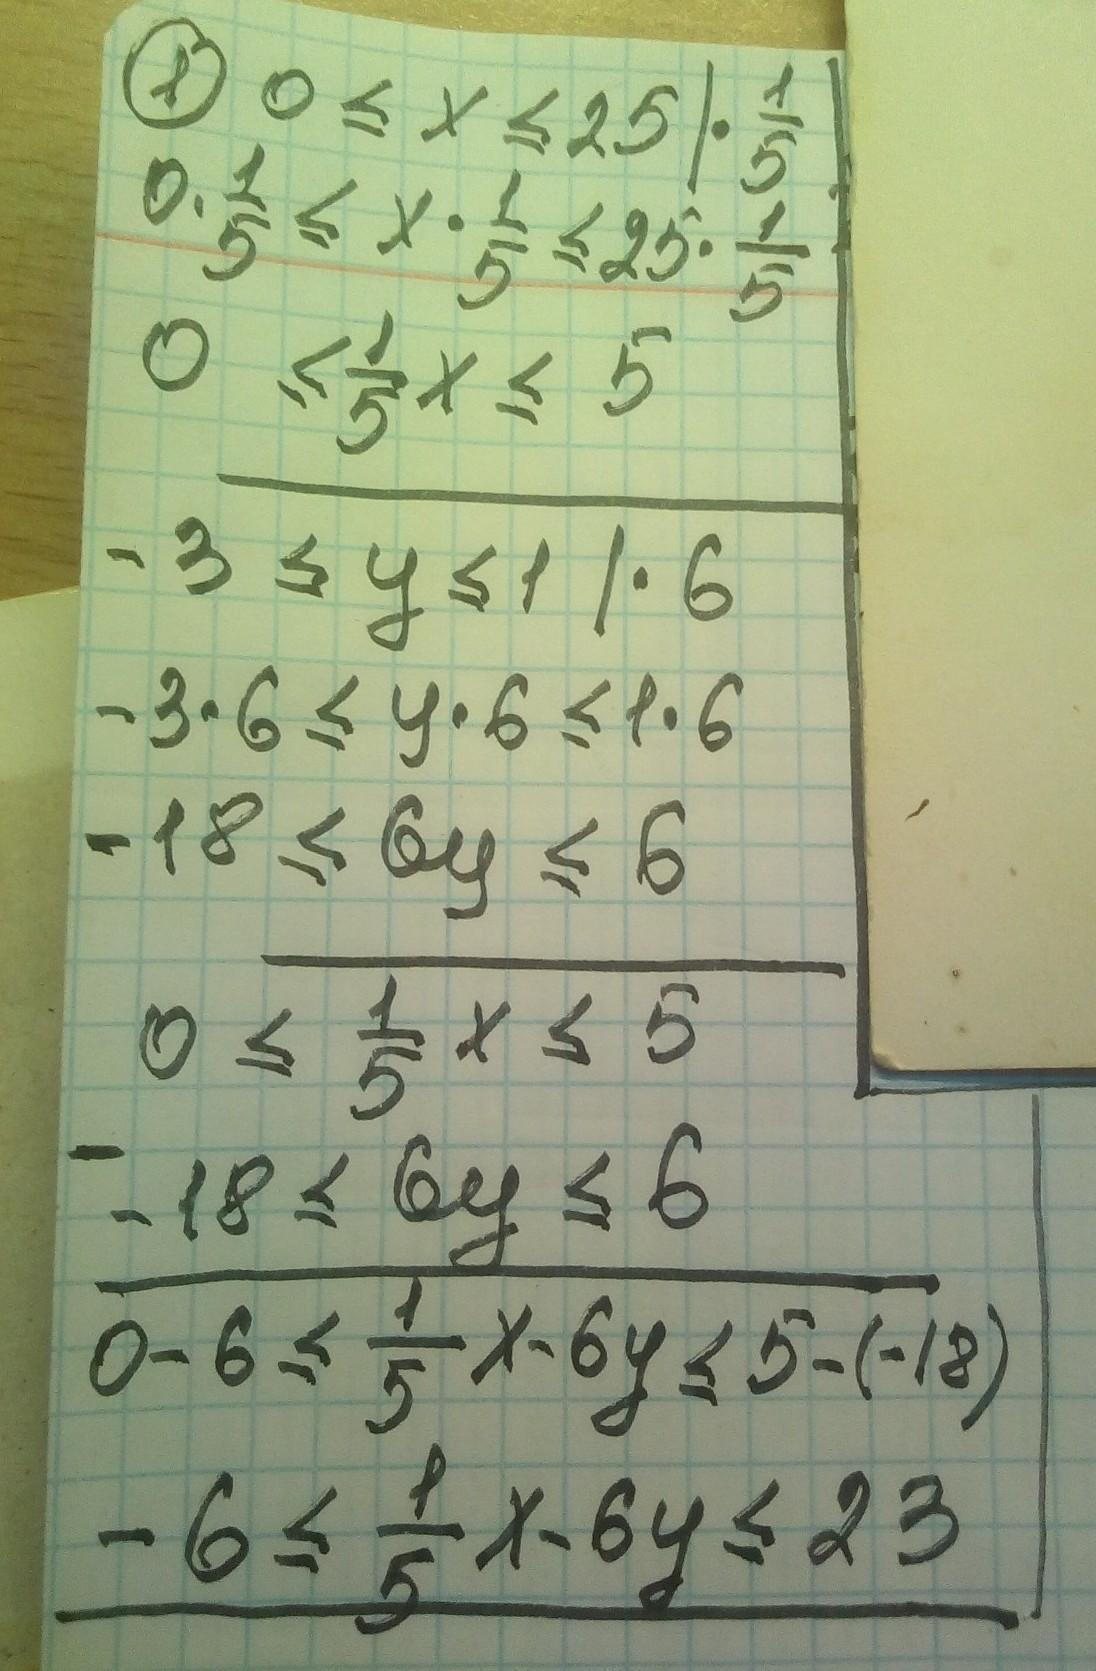 ① 0 ≤ x ≤ 25 | · 1/5
0 · 1/5 ≤ x · 1/5 ≤ 25 · 1/5
0 ≤ 1/5 x ≤ 5
-3 ≤ y ≤ 1 | · 6
-3 · 6 ≤ y · 6 ≤ 1 · 6
-18 ≤ 6y ≤ 6
0 ≤ 1/5 x ≤ 5
-
-18 ≤ 6y ≤ 6
0 - 6 ≤ 1/5 x - 6y ≤ 5 - (-18)
-6 ≤ 1/5 x - 6y ≤ 23